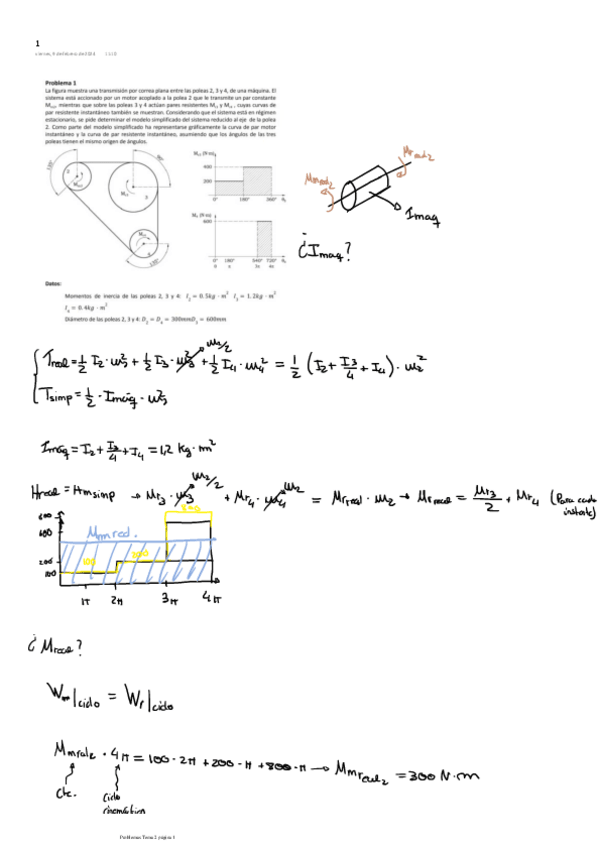 1
Problema 1
La figura muestra una transmisión por correa plana entre las poleas 2, 3 y 4, de una máquina. El
sistema está accionado por un motor acoplado a la polea 2 que le transmite un par constante
Mm2, mientras que sobre las poleas 3 y 4 actúan pares resistentes Mr3 y Mr4, cuyas curvas de
par resistente instantáneo también se muestran. Considerando que el sistema está en régimen
estacionario, se pide determinar el modelo simplificado del sistema reducido al eje de la polea
2. Como parte del modelo simplificado ha representarse gráficamente la curva de par motor
instantáneo y la curva de par resistente instantáneo, asumiendo que los ángulos de las tres
poleas tienen el mismo origen de ángulos.
400
200
0° 180° 360°
600
0° 180° 540° 720°
0 π 3π 4π
Mmred2
Mred2
Imaq
¿Imaq?
Datos:
Momentos de inercia de las poleas 2, 3 y 4: I2 = 0.5kg · m² I3 = 1.2kg · m²
I4 = 0.4kg · m²
Diámetro de las poleas 2, 3 y 4: D2 = D4 = 300mmD3 = 600mm
Treal = 1/2 I2 · ω2² + 1/2 I3 · ω3² + 1/2 I4 · ω4² = 1/2 (I2 + I3/4 + I4) · ω2²
ω2/2
Tsimp = 1/2 · Imáq · ω2²
Imáq = I2 + I3/4 + I4 = 1,2 kg · m²
Hreal = Hmsimp → Mr3 · ω3 + Mr4 · ω4 = Mrred · ω2 → Mrred = Mr3/2 + Mr4 (Para cada
instante)
ω2/2 ω2
800
800
600
Mmred.
200
100
100 200
1π 2π 3π 4π
¿Mred?
Wm|ciclo = Wr|ciclo
Mmred2 · 4π = 100 · 2π + 200 · π + 800 · π → Mmred2 = 300 N·m
Cte.
Ciclo
cinemático
Problemas Tema 2 página 1